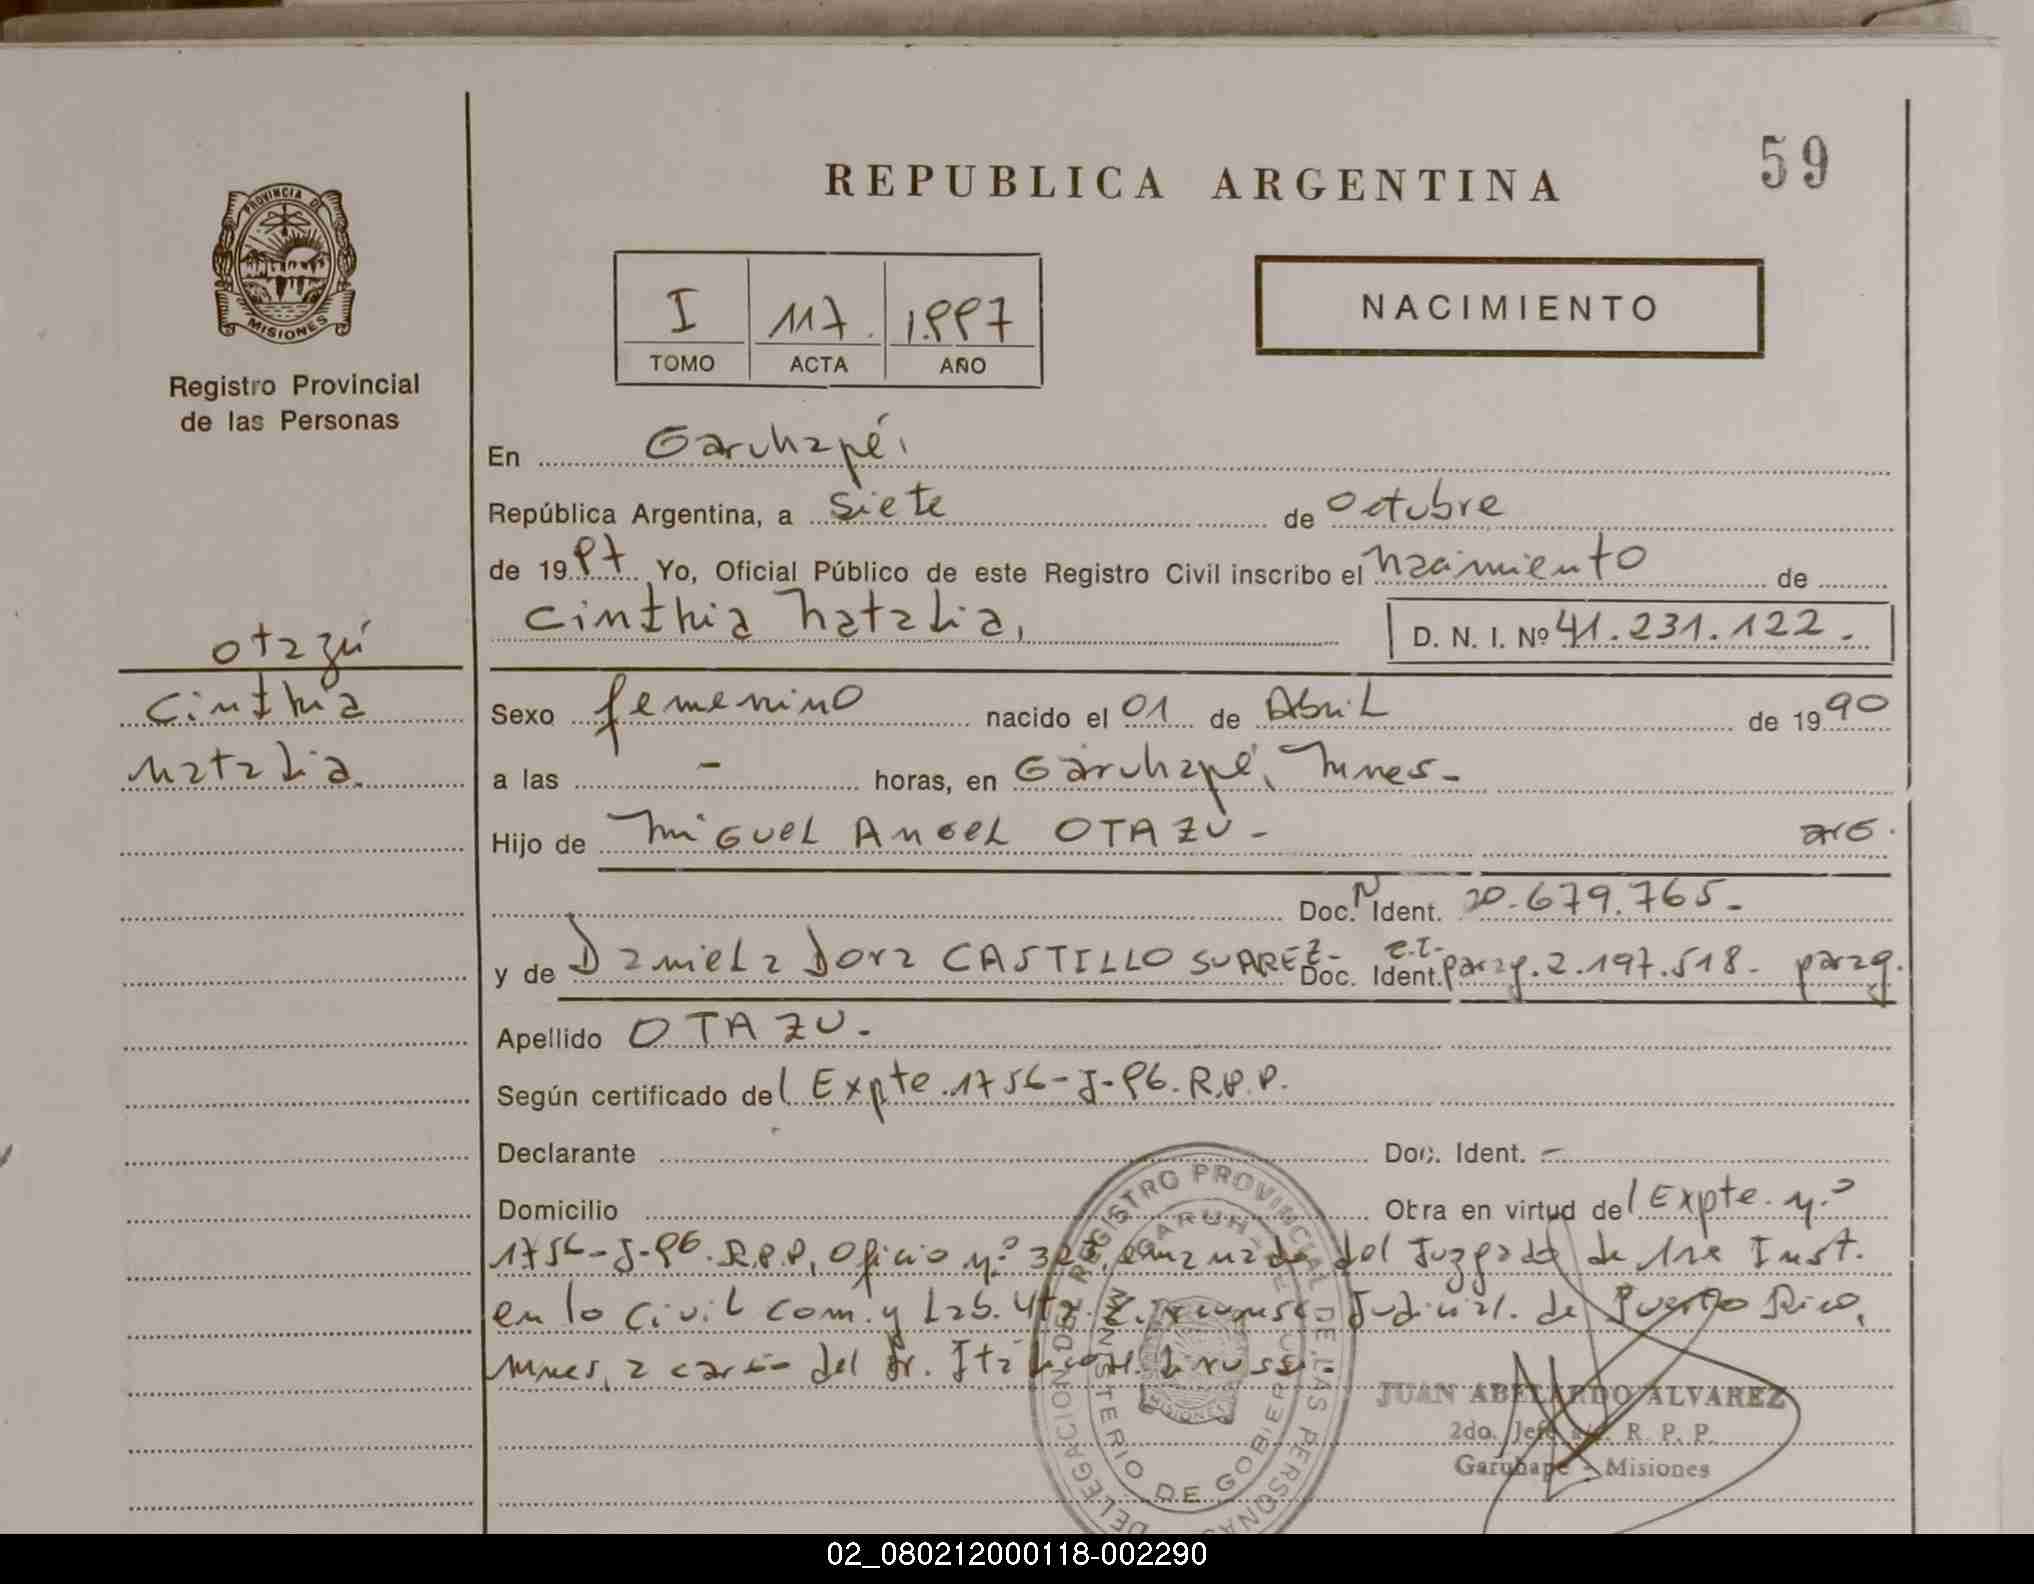 59
REPUBLICA ARGENTINA
PROVINCIA DE
MISIONES
Registro Provincial
de las Personas
I 117. 1.997
TOMO ACTA AÑO
NACIMIENTO
En Garuhapé,
República Argentina, a Siete de Octubre
de 1997 Yo, Oficial Público de este Registro Civil inscribo el nacimiento de
Cinthia Natalia, D. N. I. Nº 41.231.122.-
Otazú
Cinthia
Natalia.
Sexo femenino nacido el 01 de Abril de 1990
a las - horas, en Garuhapé, Mnes-
Hijo de Miguel Angel OTAZU- arg.
Doc. N Ident. 20.679.765-
y de Daniela Dora CASTILLO SUAREZ- Doc. Ident. c.i. parag. 2.197.518- parag.
Apellido OTAZU.-
Según certificado del Expte. 1756-J-96. R.P.P.
Declarante Doc. Ident. -
Domicilio Obra en virtud del Expte. nº
1756-J-96. R.P.P, Oficio nº emanado del Juzgado de 1ra Inst.
en lo Civil Com. y Lab. Judicial. de Puerto Rico,
Mnes, a cargo del Dr.
DELEGACION DEL REGISTRO PROVINCIAL DE LAS PERSONAS
MINISTERIO DE GOBIER
GARUH
MISIONES
JUAN ABELARDO ALVAREZ
2do. Jefe R. P. P.
Garuhapé - Misiones
02_080212000118-002290